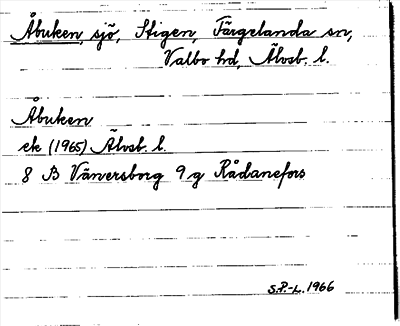 Åbuken, sjö, Stigen, Färgelanda sn,
Valbo hd, Älvsb. l.
Åbuken
ek (1965) Älvsb. l.
8 B Vänersborg 9 g Rådanefors
S.P.-L. 1966